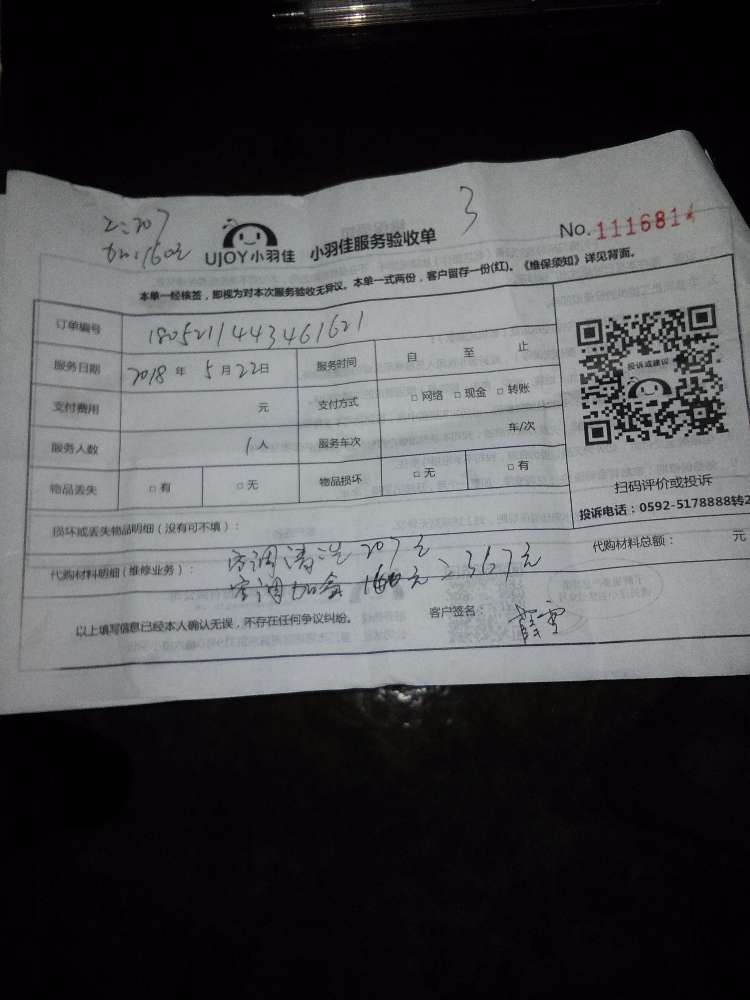 工:207
加:160元
3
UJOY小羽佳 小羽佳服务验收单
No. 1116814
本单一经核签，即视为对本次服务验收无异议。本单一式两份，客户留存一份(红)。《维保须知》详见背面。
订单编号 1805211443461621
服务日期 2018 年 5 月 22 日 服务时间 自 至 止
支付费用 元 支付方式 □ 网络 □ 现金 □ 转账
服务人数 1 人 服务车次 车/次
物品丢失 □ 有 □ 无 物品损坏 □ 无 □ 有
投诉或建议
扫码评价或投诉
投诉电话：0592-5178888转2
损坏或丢失物品明细（没有可不填）：
代购材料明细（维修业务）： 空调清洗 207元 代购材料总额： 元
空调加氟 160元 =367元
以上填写信息已经本人确认无误，不存在任何争议纠纷。 客户签名：